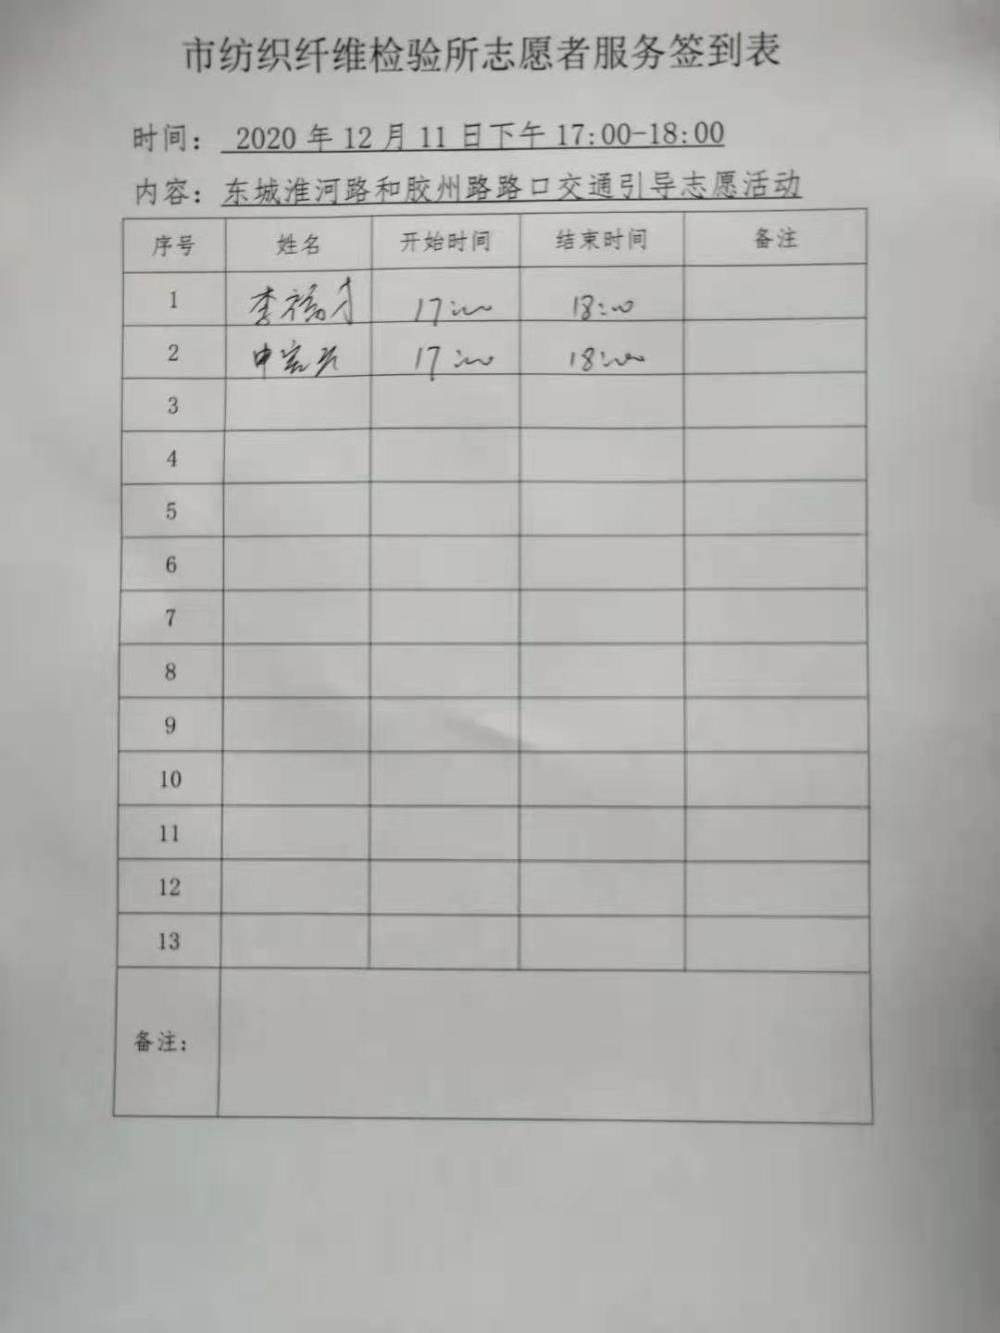 市纺织纤维检验所志愿者服务签到表
时间： 2020 年 12 月 11 日下午 17:00-18:00
内容：东城淮河路和胶州路路口交通引导志愿活动
序号 姓名 开始时间 结束时间 备注
1 李 17:00 18:00
2 申 17:00 18:00
3
4
5
6
7
8
9
10
11
12
13
备注：